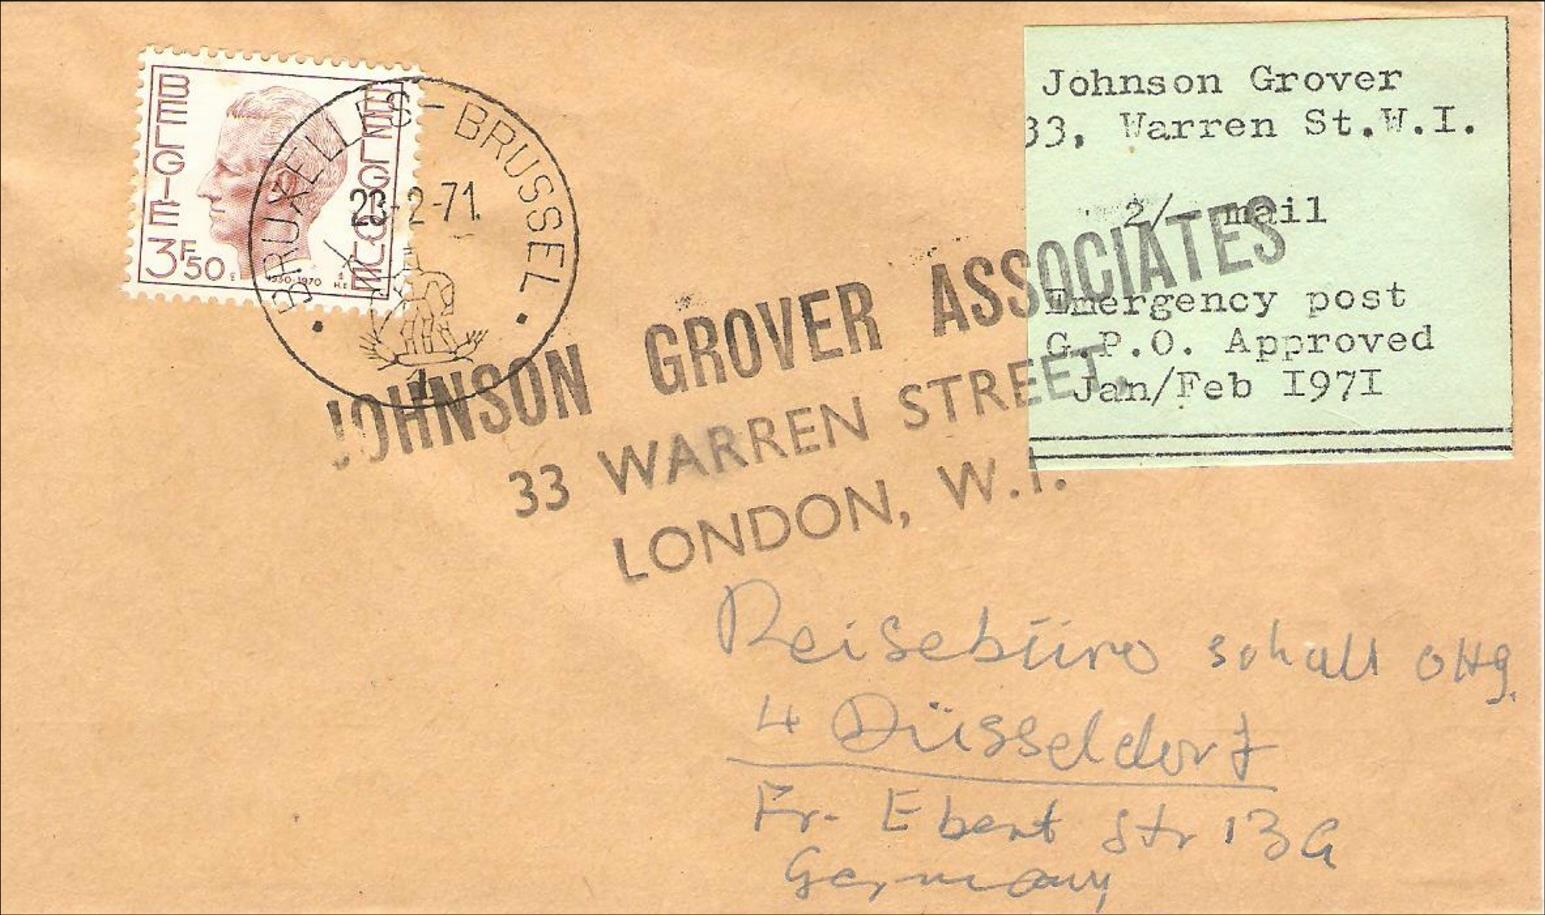 BELGIE
BELGIQUE
3F50
1930-1970
BRUXELLES - BRUSSEL
23-2-71
1
Johnson Grover
33, Warren St.W.I.
2/- mail
Emergency post
G.P.O. Approved
Jan/Feb I97I
JOHNSON GROVER ASSOCIATES
33 WARREN STREET,
LONDON, W.1.
Reisebüro
4 Düsseldorf
Fr. Ebert Str
Germany